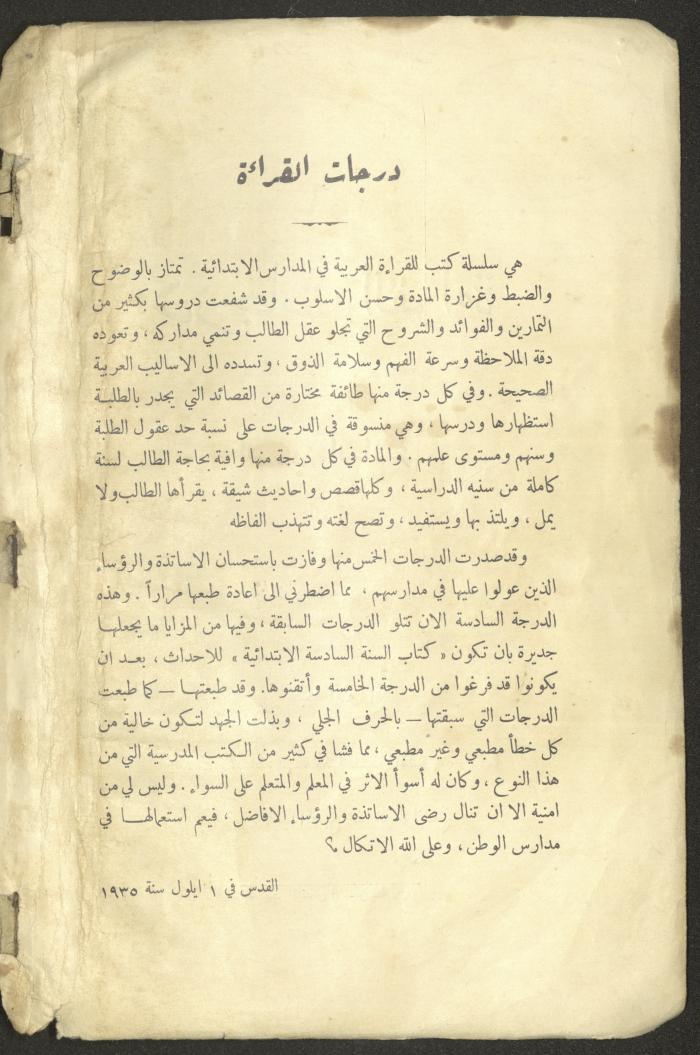 درجات القراءة
هي سلسلة كتب للقراءة العربية في المدارس الابتدائية . تمتاز بالوضوح
والضبط وغزارة المادة وحسن الاسلوب . وقد شفعت دروسها بكثير من
التمارين والفوائد والشروح التي تجلو عقل الطالب وتنمي مداركه ، وتعوده
دقة الملاحظة وسرعة الفهم وسلامة الذوق ، وتسدده الى الاساليب العربية
الصحيحة . وفي كل درجة منها طائفة مختارة من القصائد التي يجدر بالطلبة
استظهارها ودرسها ، وهي منسوقة في الدرجات على نسبة حد عقول الطلبة
وسنهم ومستوى علمهم . والمادة في كل درجة منها وافية بحاجة الطالب لسنة
كاملة من سنيه الدراسية ، وكلها قصص واحاديث شيقة ، يقرأها الطالب ولا
يمل ، ويلتذ بها ويستفيد ، وتصح لغته وتتهذب الفاظه
وقد صدرت الدرجات الخمس منها وفازت باستحسان الاساتذة والرؤساء
الذين عولوا عليها في مدارسهم ، مما اضطرني الى اعادة طبعها مراراً . وهذه
الدرجة السادسة الان تتلو الدرجات السابقة ، وفيها من المزايا ما يجعلها
جديرة بان تكون « كتاب السنة السادسة الابتدائية » للاحداث ، بعد ان
يكونوا قد فرغوا من الدرجة الخامسة وأتقنوها. وقد طبعتها — كما طبعت
الدرجات التي سبقتها — بالحرف الجلي ، وبذلت الجهد لتكون خالية من
كل خطأ مطبعي وغير مطبعي ، مما فشا في كثير من الكتب المدرسية التي من
هذا النوع ، وكان له أسوأ الاثر في المعلم والمتعلم على السواء . وليس لي من
امنية الا ان تنال رضى الاساتذة والرؤساء الافاضل ، فيعم استعمالها في
مدارس الوطن ، وعلى الله الاتكال ؟
القدس في ١ ايلول سنة ١٩٣٥